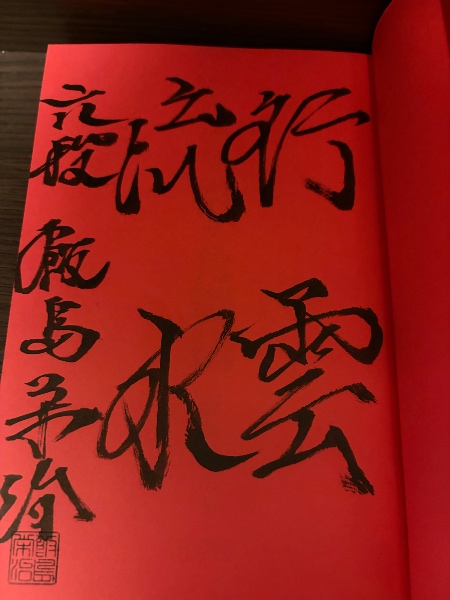 行雲
流水
六段 飯島栄治
飯島栄治